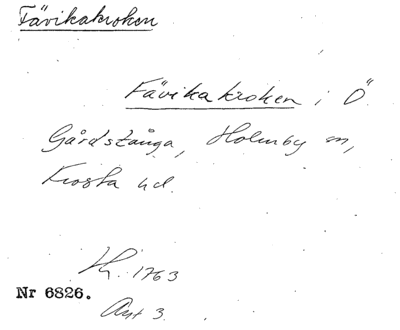 Fävikakroken
Fävikakroken i Ö
Gårdstånga, Holmby sn,
Frosta hd.
1763
Nr 6826.
Avt 3.